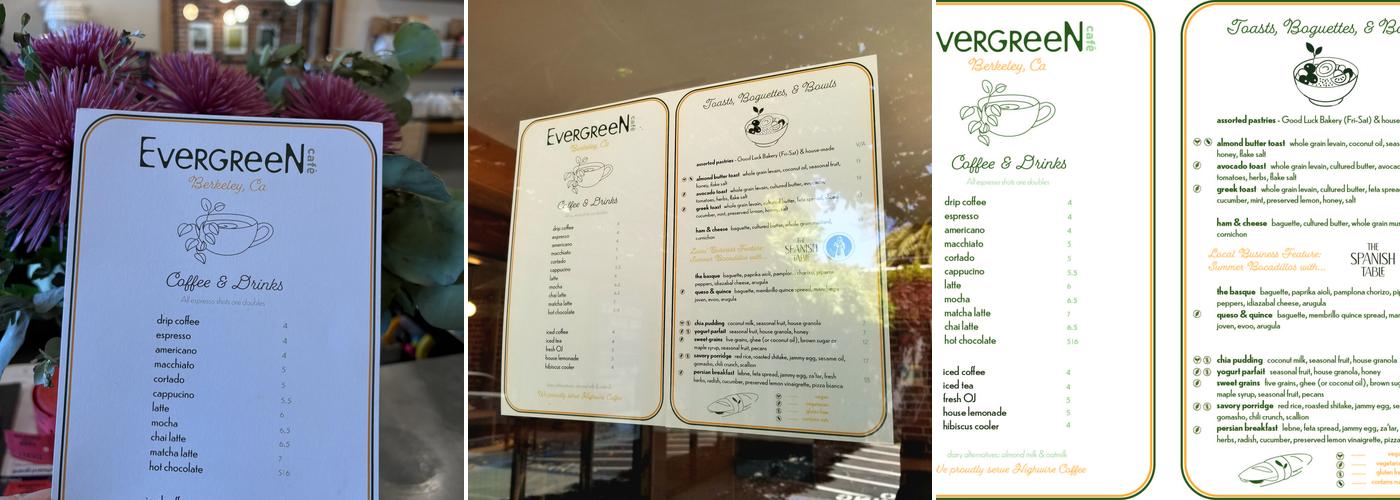 EverGreeN café
Berkeley, Ca
Coffee & Drinks
All espresso shots are doubles
drip coffee 4
espresso 4
americano 4
macchiato 5
cortado 5
cappucino 5.5
latte 6
mocha 6.5
chai latte 6.5
matcha latte 7
hot chocolate 5|6
EverGreeN café
Berkeley, Ca
Coffee & Drinks
drip coffee
espresso
americano
macchiato
cortado
cappucino
latte
mocha
chai latte
matcha latte
hot chocolate
iced coffee
iced tea
fresh OJ
house lemonade
hibiscus cooler
We proudly serve Highwire Coffee
Toasts, Baguettes, & Bowls
assorted pastries - Good Luck Bakery (Fri-Sat) & house-made
almond butter toast whole grain levain, coconut oil, seasonal fruit,
honey, flake salt
avocado toast whole grain levain, cultured butter, avocado,
tomatoes, herbs, flake salt
greek toast whole grain levain, cultured butter, feta spread,
cucumber, mint, preserved lemon, honey, salt
ham & cheese baguette, cultured butter, whole grain mustard,
cornichon
Local Business Feature:
Summer Bocadillos with...
THE
SPANISH
TABLE
the basque baguette, paprika aioli, pamplona chorizo, piparra
peppers, idiazabal cheese, arugula
queso & quince baguette, membrillo quince spread, manchego
joven, evoo, arugula
chia pudding coconut milk, seasonal fruit, house granola
yogurt parfait seasonal fruit, house granola, honey
sweet grains five grains, ghee (or coconut oil), brown sugar or
maple syrup, seasonal fruit, pecans
savory porridge red rice, roasted shitake, jammy egg, sesame oil,
gomasho, chili crunch, scallion
persian breakfast lebne, feta spread, jammy egg, za'tar, fresh
herbs, radish, cucumber, preserved lemon vinaigrette, pizza bianca
vegan
vegetarian
gluten free
contains nuts
verGreeN café
Berkeley, Ca
Coffee & Drinks
All espresso shots are doubles
drip coffee 4
espresso 4
americano 4
macchiato 5
cortado 5
cappucino 5.5
latte 6
mocha 6.5
matcha latte 7
chai latte 6.5
hot chocolate 5|6
iced coffee 4
iced tea 4
fresh OJ 5
house lemonade 5
hibiscus cooler 4
dairy alternatives: almond milk & oatmilk
We proudly serve Highwire Coffee
Toasts, Baguettes, & Bo
assorted pastries - Good Luck Bakery (Fri-Sat) & house
almond butter toast whole grain levain, coconut oil, seas
honey, flake salt
avocado toast whole grain levain, cultured butter, avoca
tomatoes, herbs, flake salt
greek toast whole grain levain, cultured butter, feta sprea
cucumber, mint, preserved lemon, honey, salt
ham & cheese baguette, cultured butter, whole grain mus
cornichon
Local Business Feature:
Summer Bocadillos with...
THE
SPANISH
TABLE
the basque baguette, paprika aioli, pamplona chorizo, pip
peppers, idiazabal cheese, arugula
queso & quince baguette, membrillo quince spread, man
joven, evoo, arugula
chia pudding coconut milk, seasonal fruit, house granola
yogurt parfait seasonal fruit, house granola, honey
sweet grains five grains, ghee (or coconut oil), brown sug
maple syrup, seasonal fruit, pecans
savory porridge red rice, roasted shitake, jammy egg, se
gomasho, chili crunch, scallion
persian breakfast lebne, feta spread, jammy egg, za'tar,
herbs, radish, cucumber, preserved lemon vinaigrette, pizza
vega
vegetaria
gluten fre
contains nu